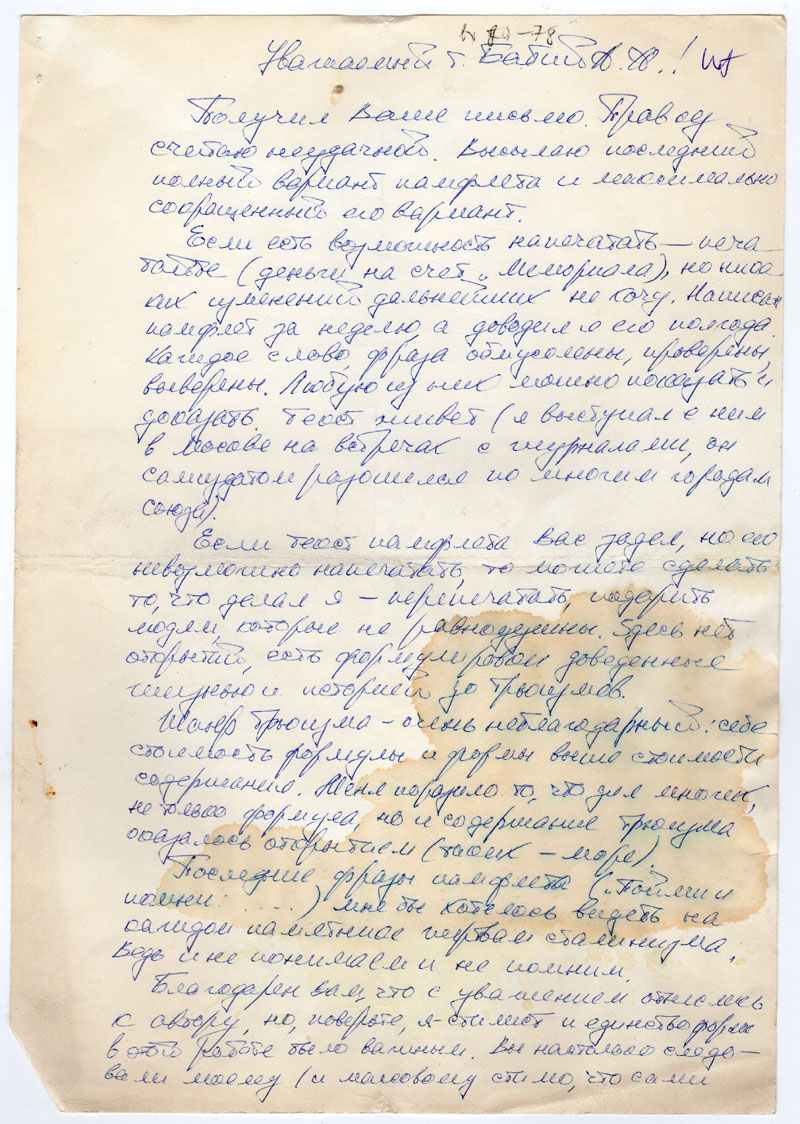 -78
Уважаемый т. Бабий А. А.!
Получил Ваше письмо. Правку
считаю неудачной. Высылаю последний
полный вариант памфлета и максимально
сокращенный его вариант.
Если есть возможность напечатать — печа-
тайте (деньги на счет „Мемориала), но ника-
ких изменений дальнейших не хочу. Написан
памфлет за неделю, а доводил я его полгода.
Каждое слово, фраза обмусолены, проверены,
выверены. Любую из них можно показать и
доказать. Текст живет (я выступал с ним
в Москве на встречах с журналами, он
самиздатом разошелся по многим городам
союза).
Если текст памфлета Вас задел, но его
невозможно напечатать, то можете сделать
то, что делал я — перепечатать, подарить
людям, которые не равнодушны. Здесь нет
открытий, есть формулировки доведенные
жизнью и историей до трюизмов.
Жанр трюизма — очень неблагодарный: себе-
стоимость формулы и формы выше стоимости
содержания. Меня поразило то, что для многих,
не только формула, но и содержание трюизма
оказалось открытием (таких — море).
Последние фразы памфлета („Пойми и
помни: ....) мне бы хотелось видеть на
каждом памятнике жертвам сталинизма.
Ведь и не понимаем и не помним.
Благодарен вам, что с уважением отнеслись
к автору, но, поверьте, я — стилист и единство формы
в этой работе было важным. Вы настолько следо-
вали моему (и массовому стилю, что сами